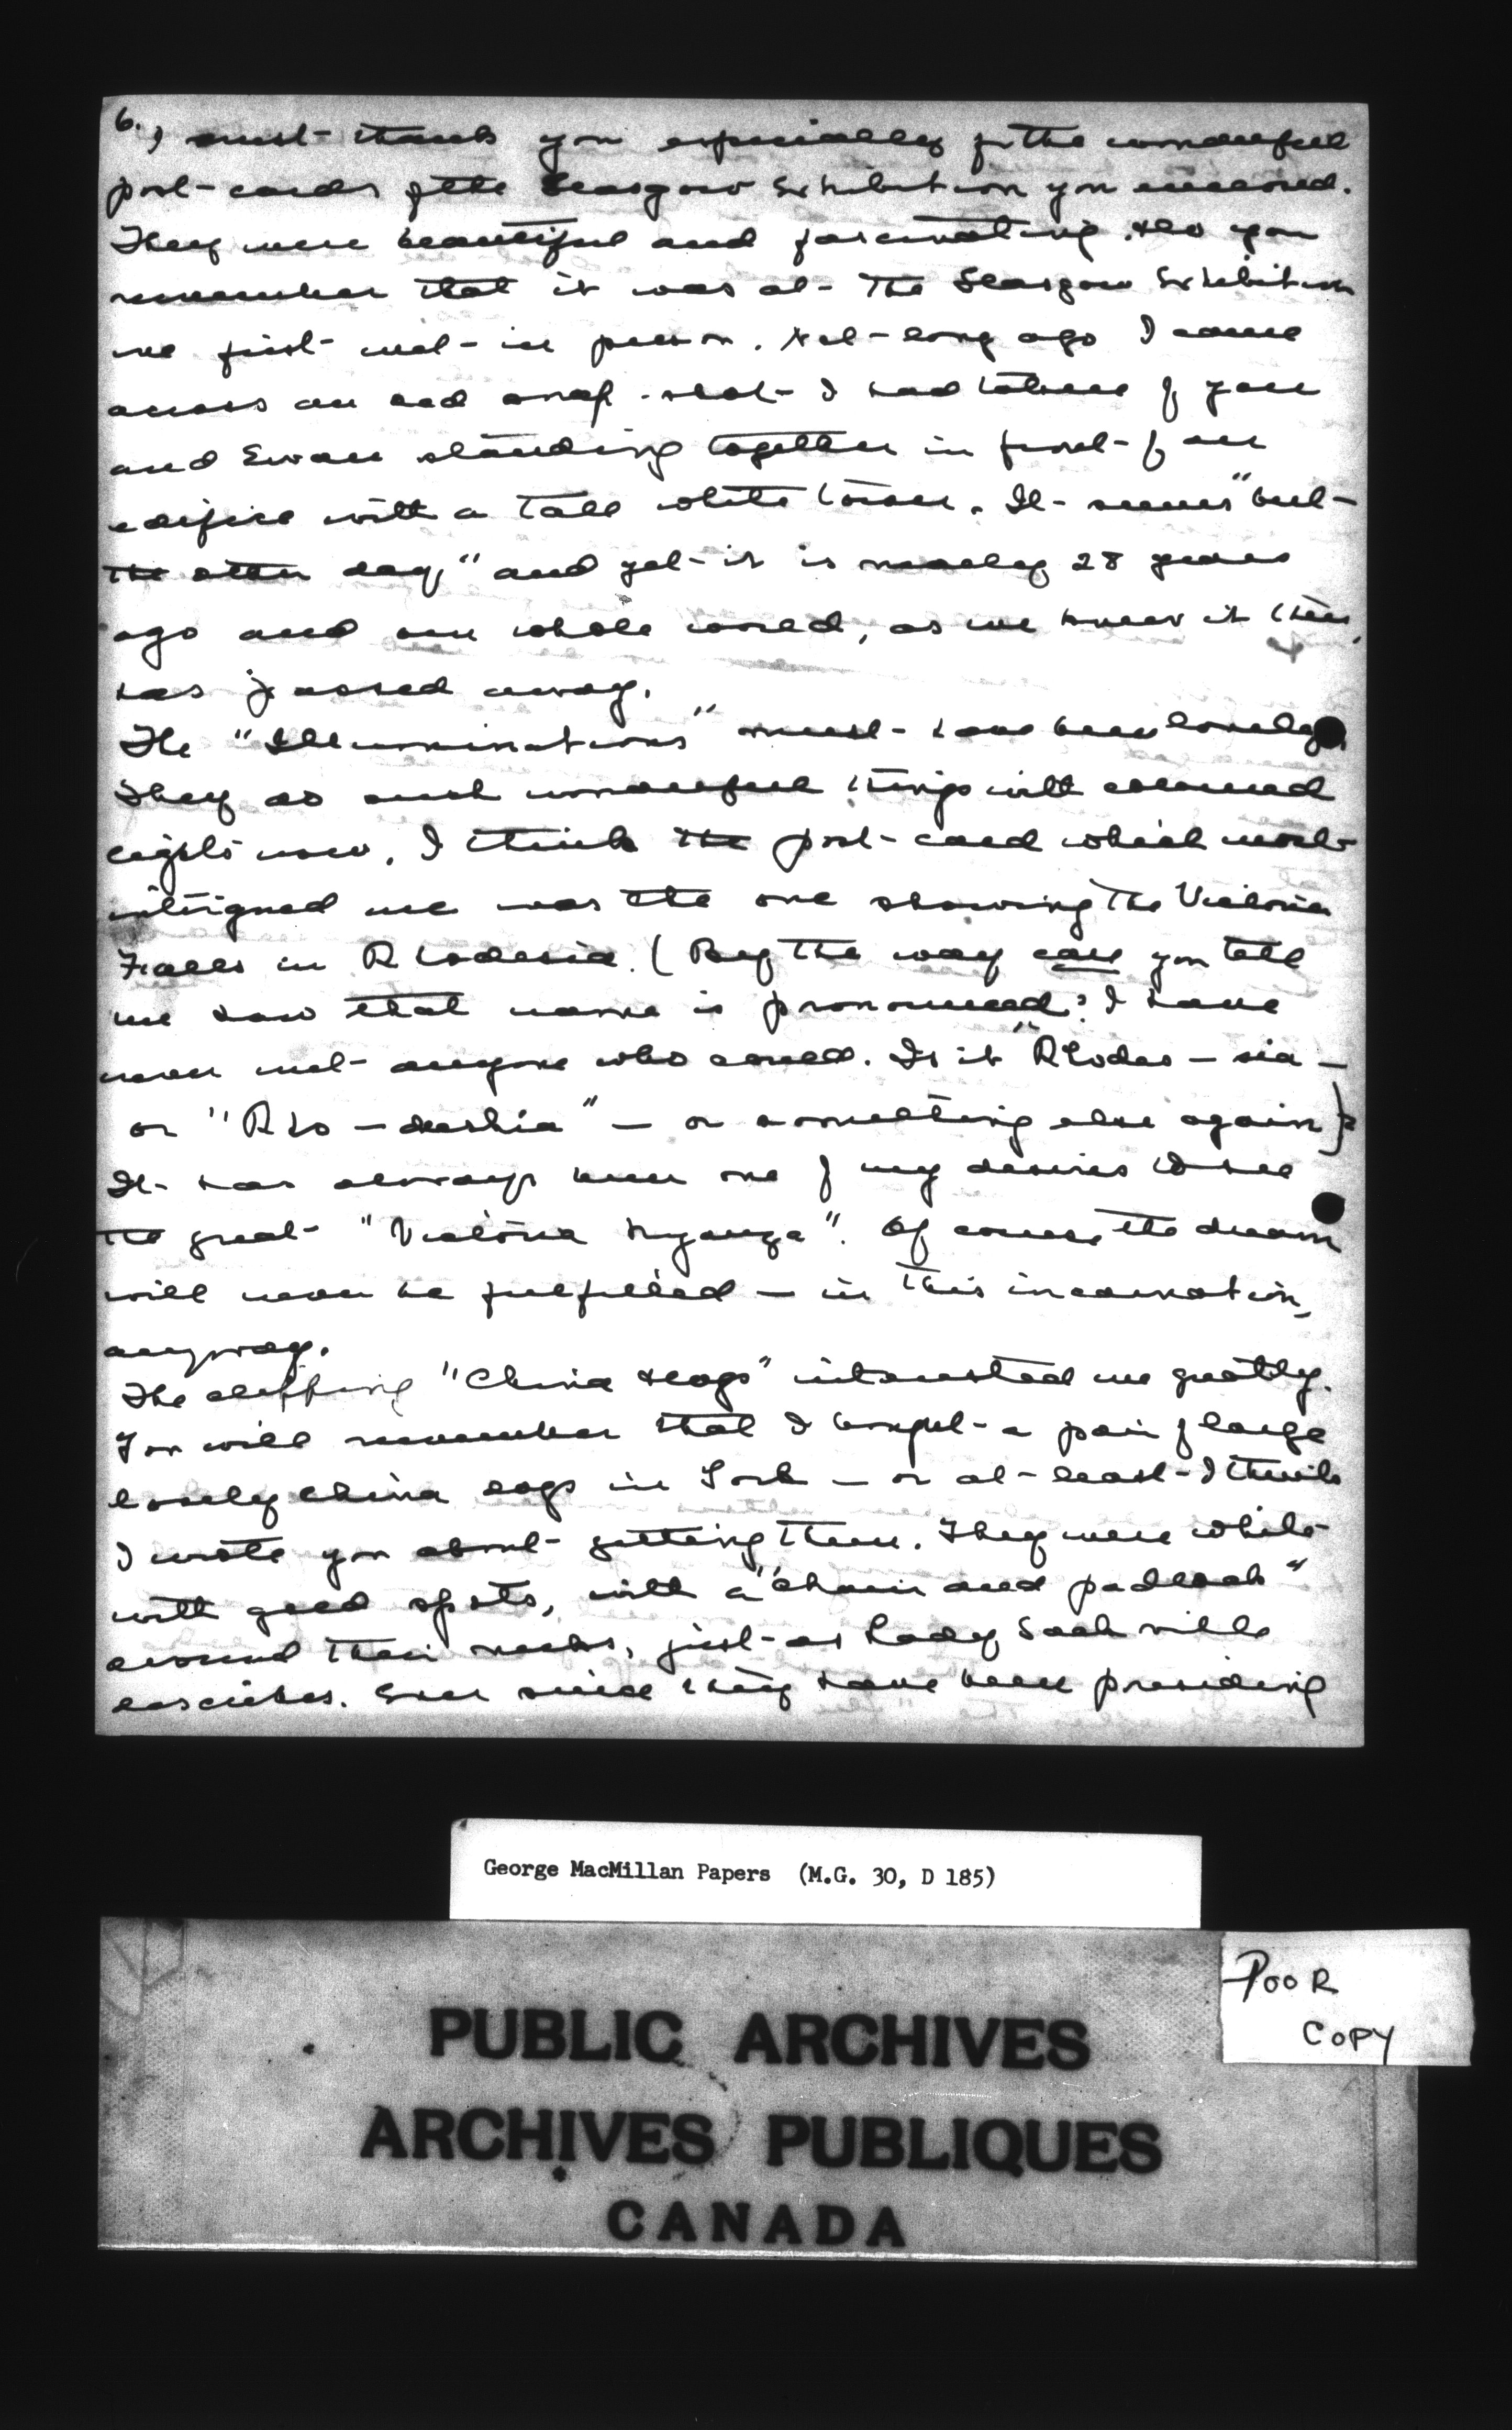 6.
I must thank you especially for the wonderful
post-cards of the Glasgow Exhibition you enclosed.
They were beautiful and fascinating. Do you
remember that it was at the Glasgow Exhibition
we first met in person. Not long ago I came
across an old snap-shot I had taken of you
and Ewan standing together in front of an
edifice with a tall white tower. It seems "but
the other day," and yet it is nearly 28 years
ago and our whole world, as we knew it then,
has passed away.
The "Illuminations" must have been lovely.
They do such wonderful things with coloured
lights now. I think the post-card which most
intrigued me was the one showing the Victoria
Falls in Rhodesia. (By the way can you tell
me how that name is pronounced? I have
never met anyone who could. Is it "Rhodes-sia —
or "Rho-deshia" — or something else again)?
It has always been one of my desires to see
the great "Victoria Nyanza". Of course the dream
will never be fulfilled — in this incarnation,
anyway.
The clipping "China Dogs" interested me greatly.
You will remember that I bought a pair of large
lovely china dogs in York — or at least I think
I wrote you about getting them. They were white
with gold spots, with a "chain and padlock"
around their necks, just as Lady Sackville
describes. Ever since they have been presiding
George MacMillan Papers (M.G. 30, D 185)
POOR
COPY
PUBLIC ARCHIVES
ARCHIVES PUBLIQUES
CANADA